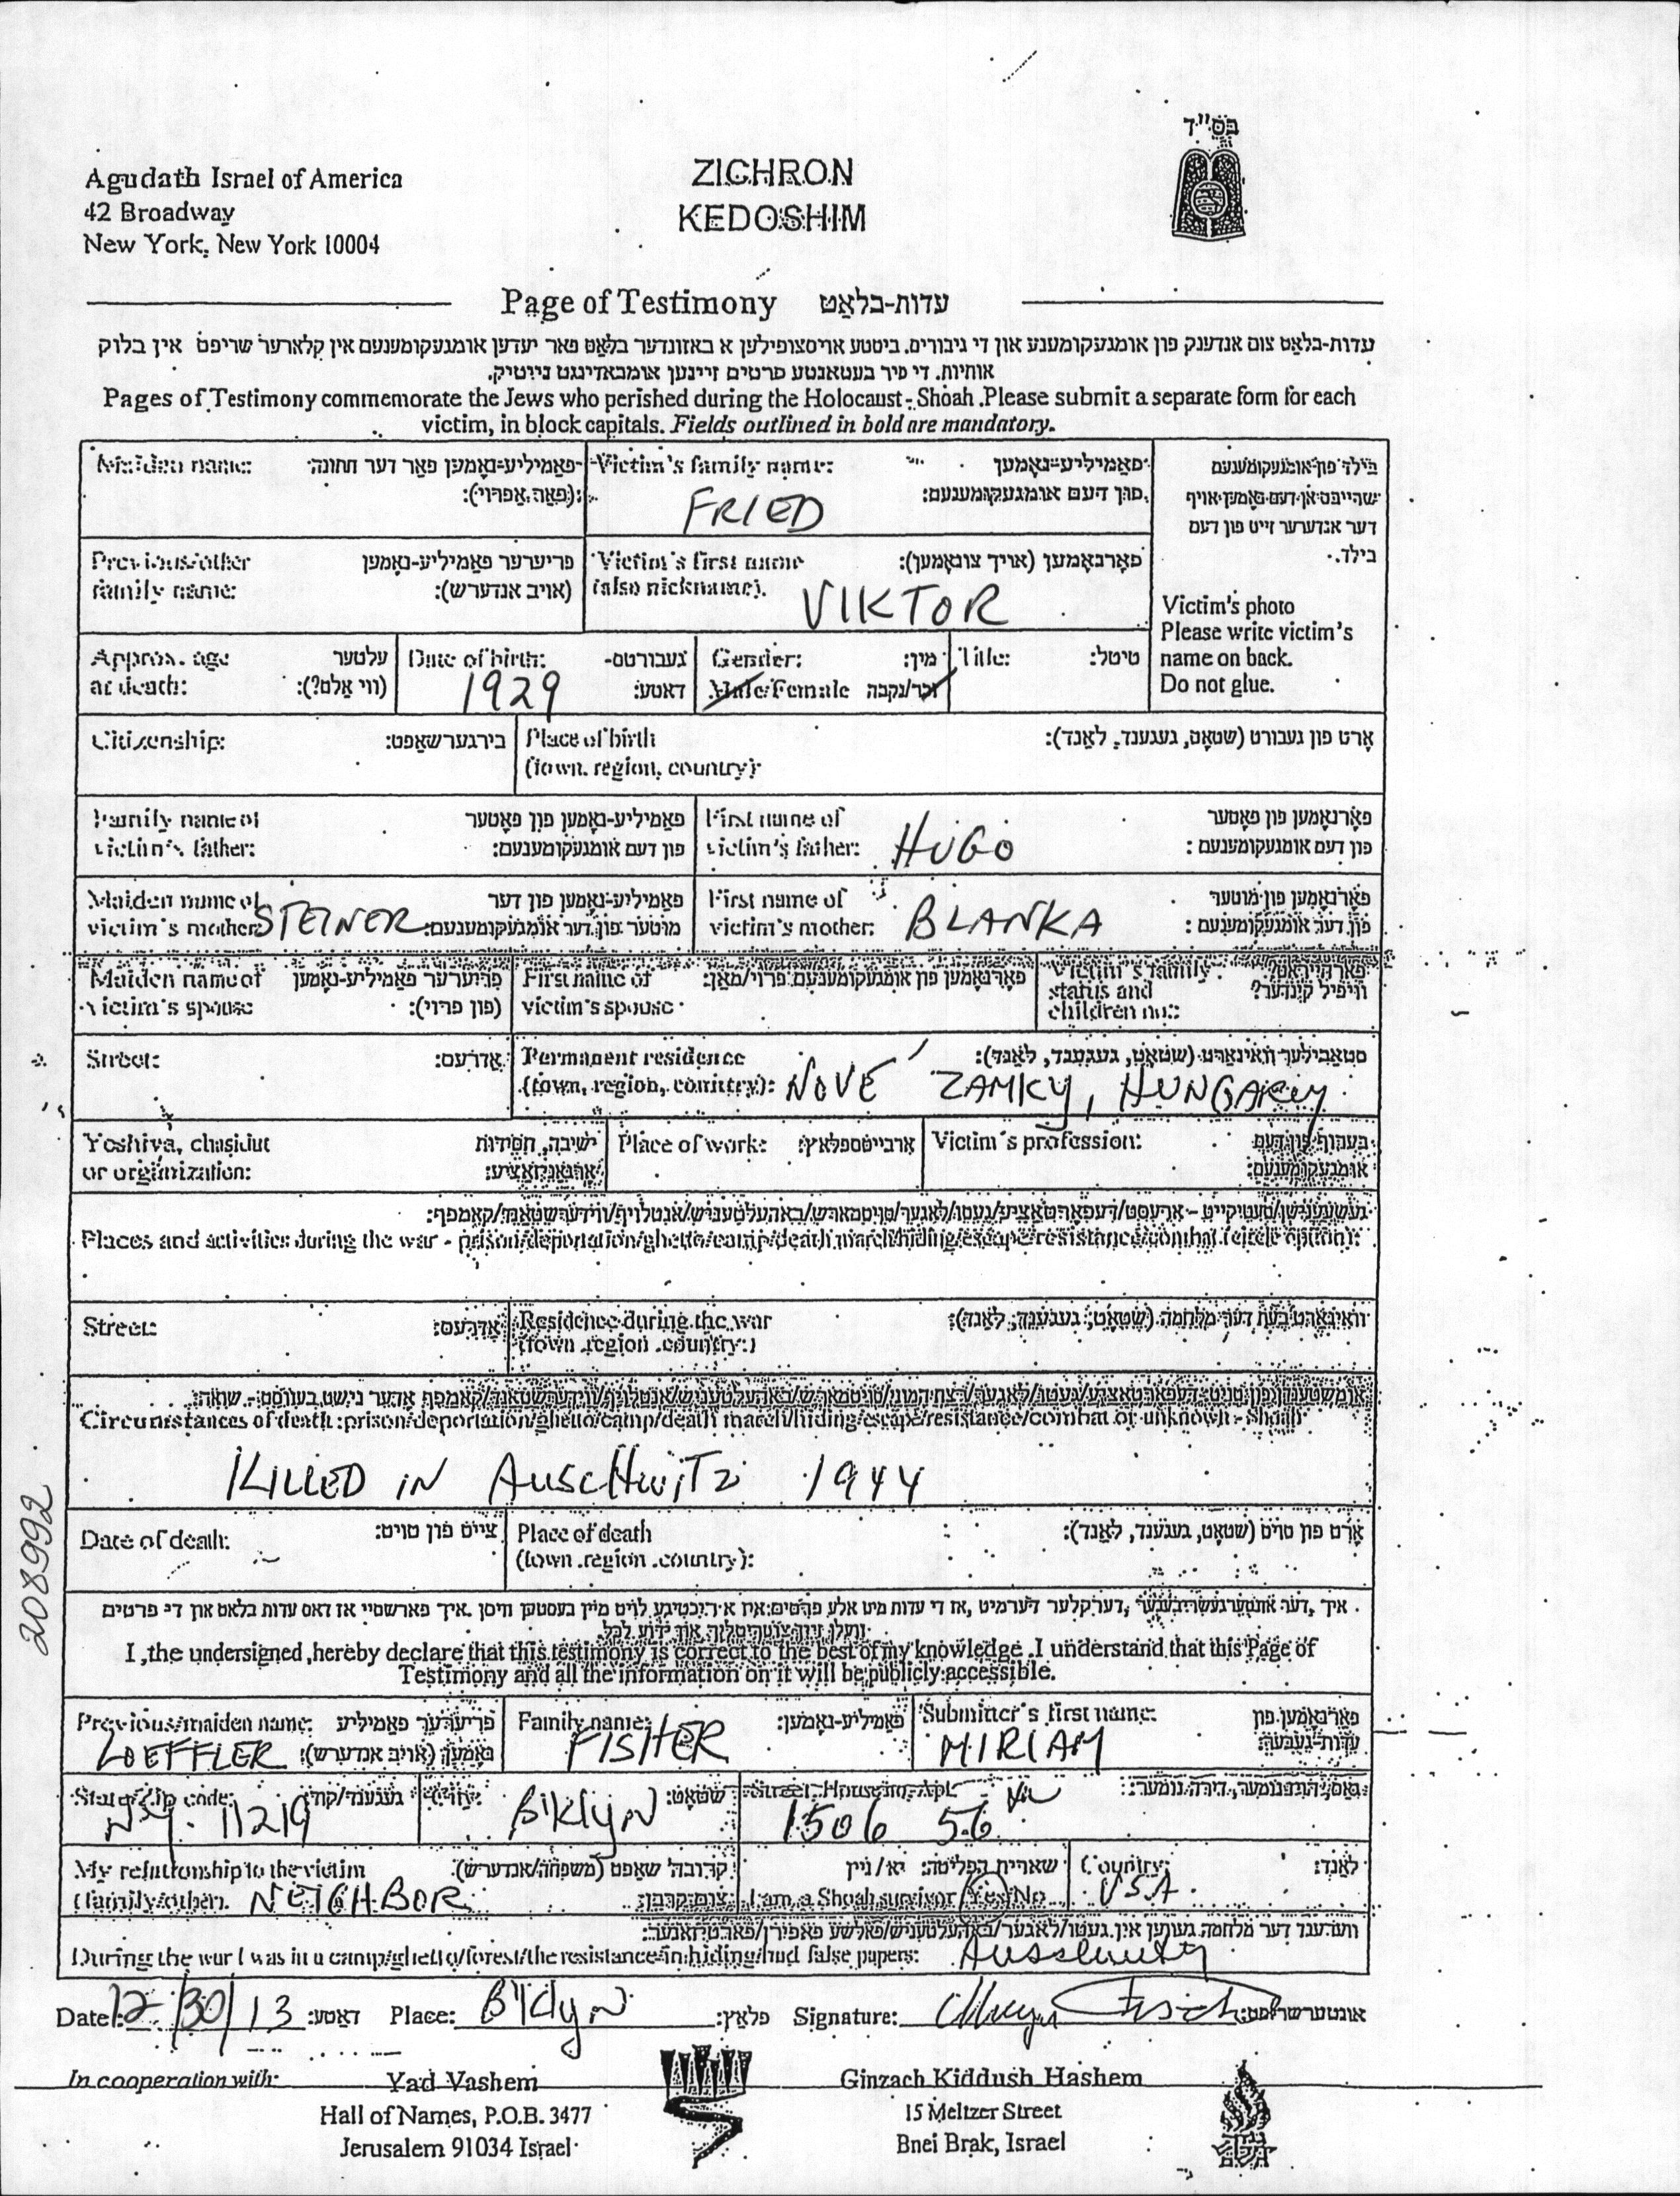 בס"ד
Agudath Israel of America
42 Broadway
New York, New York 10004
ZICHRON
KEDOSHIM
Page of Testimony עדות-בלאַט
עדות-בלאַט צום אנדענק פון אומגעקומענע און די גיבורים. ביטטע אויסצופילען א באזונדער בלאַט פאר יעדען אומגעקומענעם אין קלארער שריפט אין בלוק
אותיות. די פיר בעטאנטע פרטים זיינען אומבאדינגט נייטיק.
Pages of Testimony commemorate the Jews who perished during the Holocaust - Shoah .Please submit a separate form for each
victim, in block capitals. Fields outlined in bold are mandatory.
Maiden name: פאַמיליע-נאָמען פאַר דער חתונה:
Victim's family name: פאַמיליע-נאָמען
פון דעם אומגעקומענעם:
FRIED
Previous/other פריערער פאַמיליע-נאָמען
family name: (אויב אנדערש):
Victim's first name פאָרנאָמען (אויך צונאָמען):
(also nickname).
VIKTOR
בילד פון אומגעקומענעם
דער אנדערער זייט פון דעם
בילד.
Victim's photo
Please write victim's
name on back.
Do not glue.
Approx. age עלטער
at death: (ווי אַלט?):
Date of birth: געבורטס-
דאטע:
1929
Gender: מין:
Male/Female זכר/נקבה
Title: טיטל:
Citizenship: בירגערשאַפט:
Place of birth אָרט פון געבורט (שטאָט, געגענד, לאַנד):
(town, region, country)
Family name of פאַמיליע-נאָמען פון פאָטער
victim's father: פון דעם אומגעקומענעם:
First name of פאָרנאָמען פון פאָטער
victim's father: פון דעם אומגעקומענעם:
HUGO
Maiden name of פאַמיליע-נאָמען פון דער
victim's mother: מוטער פון דער אומגעקומענעם:
STEINER
First name of פאָרנאָמען פון מוטער
victim's mother: פון דער אומגעקומענעם:
BLANKA
Maiden name of פריערער פאַמיליע-נאָמען
victim's spouse (פון פרוי):
First name of פאָרנאָמען פון אומגעקומענעם פרוי/מאַן:
victim's spouse
Victim's family פארהייראט?
status and וויפיל קינדער?
children no.:
Street: אַדרעס:
Permanent residence סטאַבילער וואוינאָרט (שטאָט, געגענד, לאַנד):
(town, region, country):
NOVÉ ZAMKY, HUNGARY
Yeshiva, chasidut ישיבה, חסידות
or organization:
Place of work: ארבייטספלאץ:
Victim's profession:
Places and activities during the war - prison/deportation/ghetto/camp/death march/hiding/escape/resistance/combat (circle option):
Street: אַדרעס:
Residence during the war וואוינארט בעת דער מלחמה (שטאָט, געגענד, לאַנד):
(town .region .country:)
Circumstances of death :prison/deportation/ghetto/camp/death march/hiding/escape/resistance/combat or unknown - Shoah
KILLED IN AUSCHWITZ 1944
Date of death: צייט פון טויט:
Place of death אָרט פון טויט (שטאָט, געגענד, לאַנד):
(town .region .country):
208992
I ,the undersigned ,hereby declare that this testimony is correct to the best of my knowledge .I understand that this Page of
Testimony and all the information on it will be publicly accessible.
Previous/maiden name: פריערער פאַמיליע
נאָמען (אויב אנדערש):
LOEFFLER
Family name: פאַמיליע-נאָמען:
FISHER
Submitter's first name: פאָרנאָמען פון
MIRIAM
State/Zip code: געגענד/קוד:
N.Y. 11219
שטאָט:
BKlyN
Street, House no., Apt.
1506 56
My relationship to the victim קרובה'שאַפט (משפחה/אנדערש)
(family/other).
NEIGHBOR
שארית הפליטה: יא/ניין
I am a Shoah survivor Yes/No
Country: לאַנד:
USA
During the war I was in a camp/ghetto/forest/the resistance/in hiding/had false papers:
Auschwitz
Date: 12/30/13 דאַטע: Place: BKlyN פלאַץ: Signature: אונטערשריפט:
In cooperation with: Yad Vashem
Hall of Names, P.O.B. 3477
Jerusalem 91034 Israel
Ginzach Kiddush Hashem
15 Meltzer Street
Bnei Brak, Israel